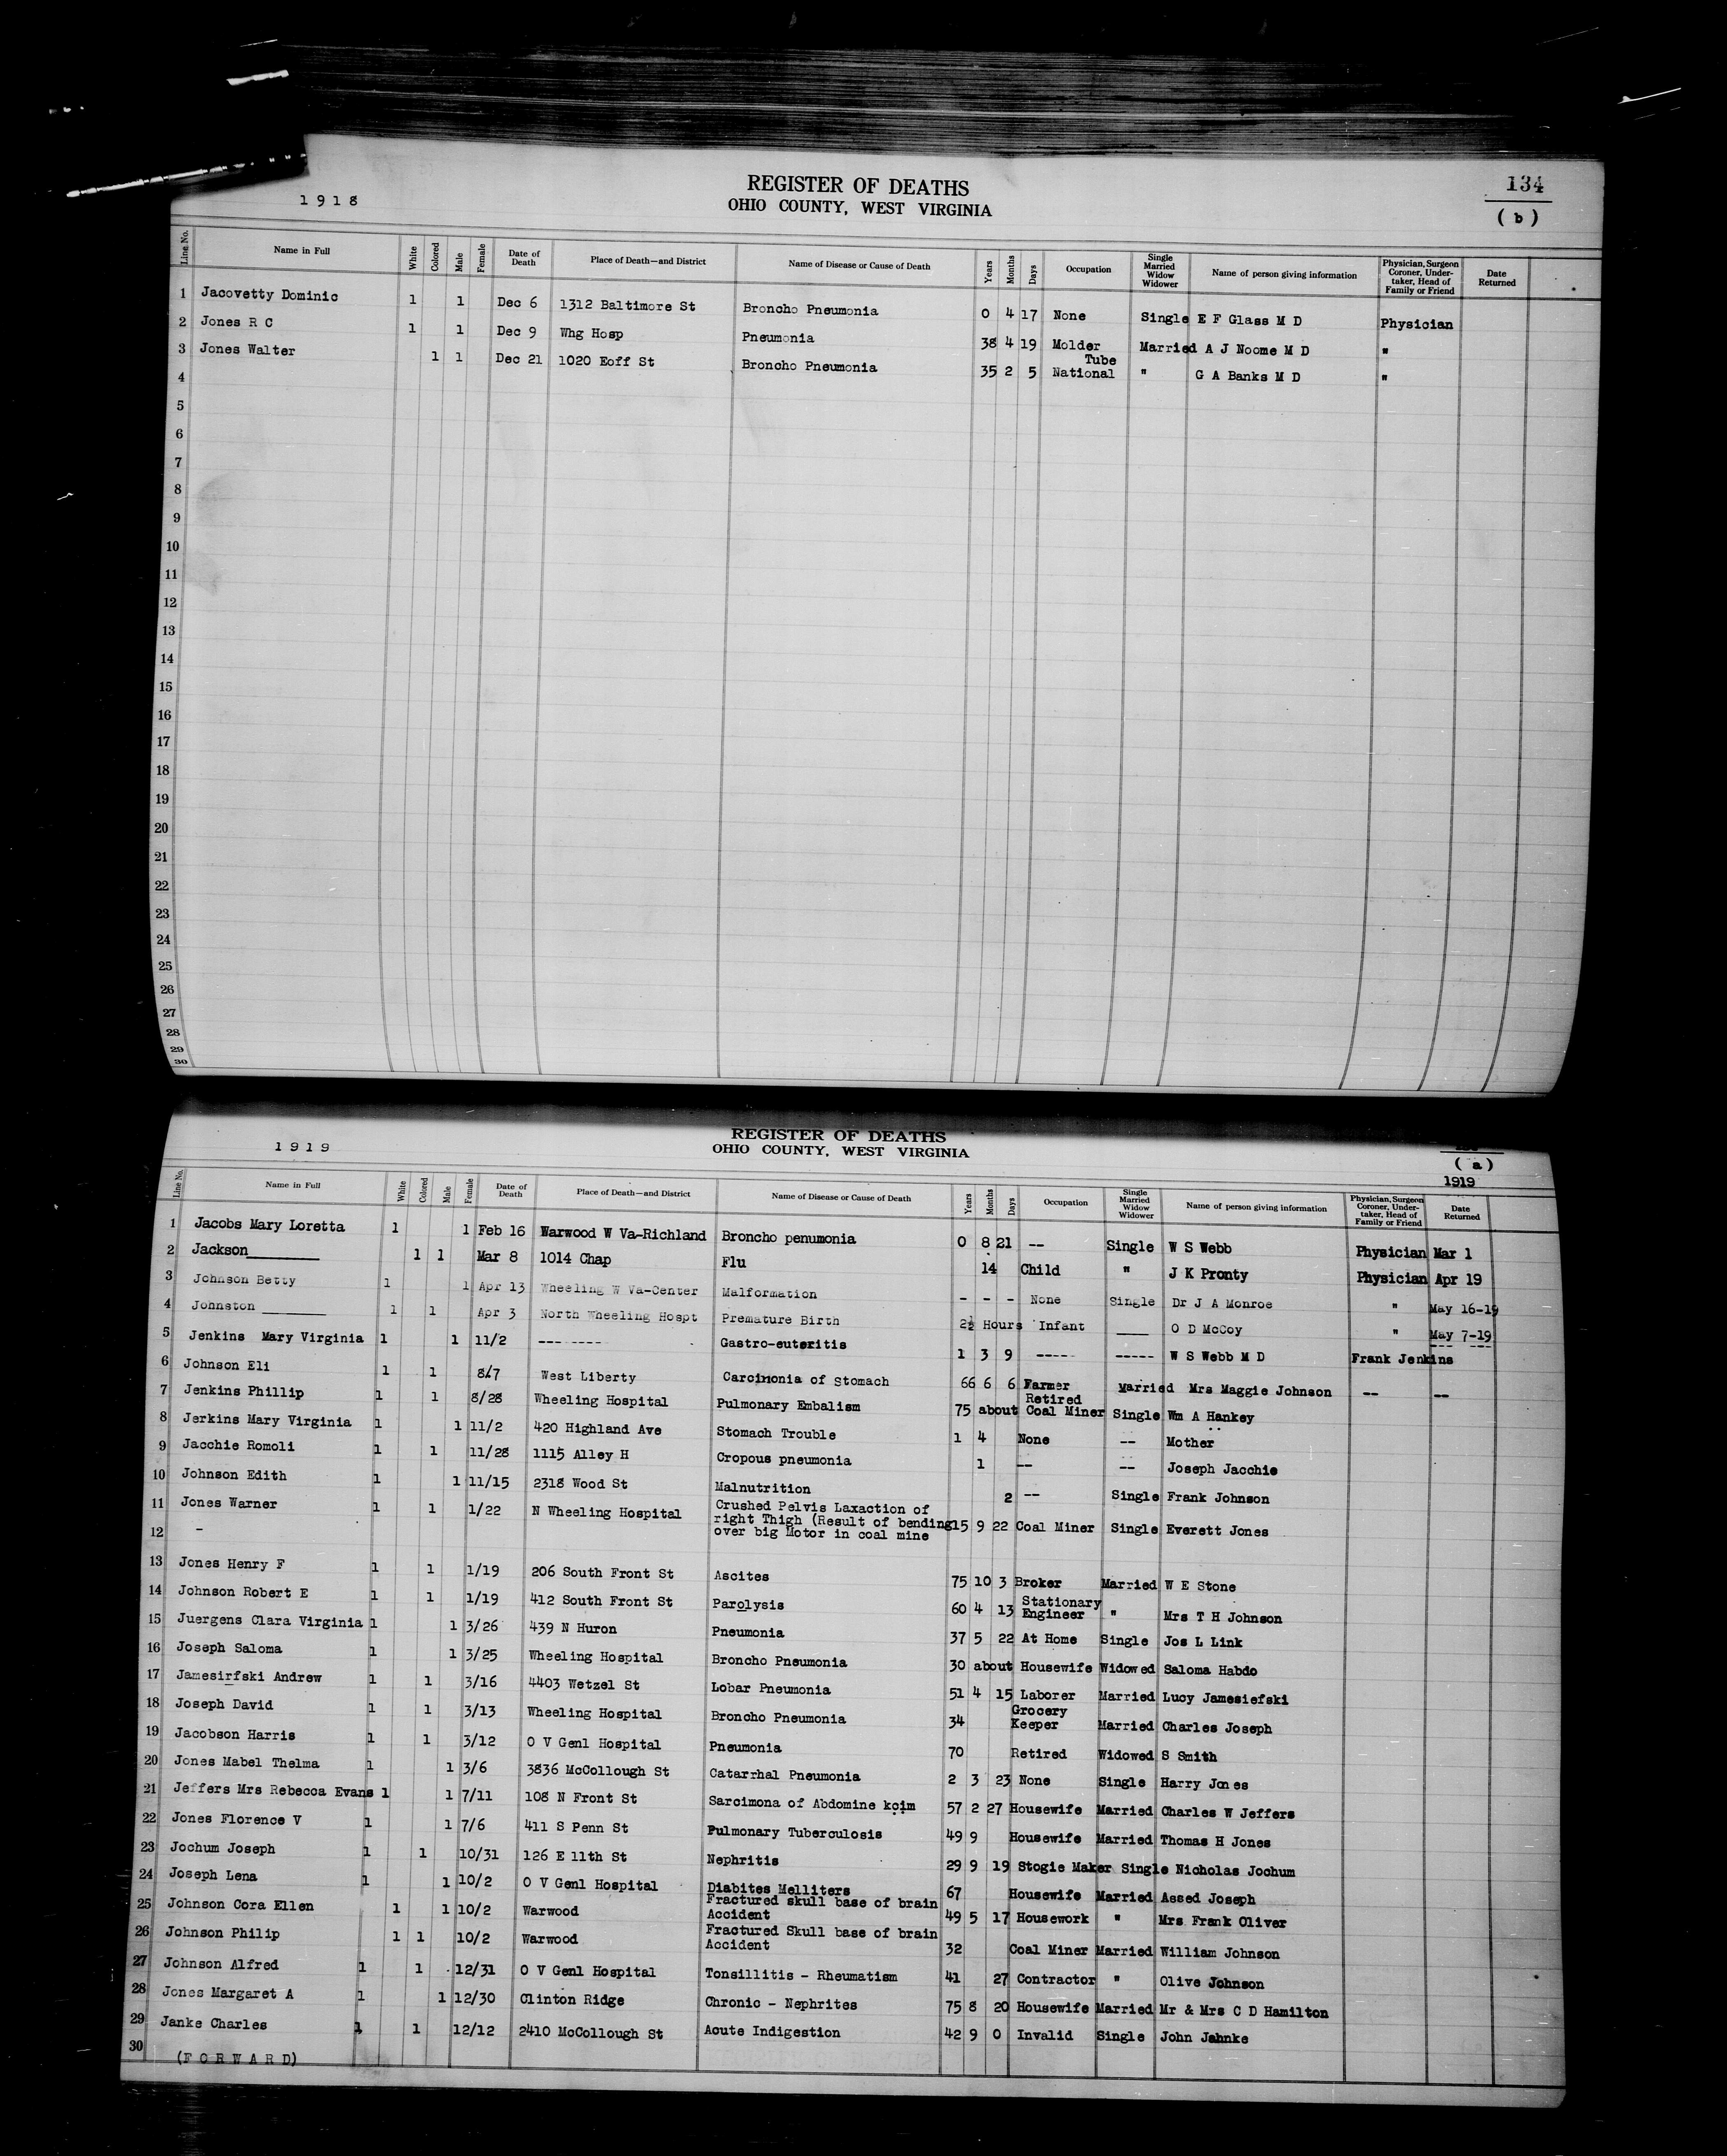 1918
REGISTER OF DEATHS
134
OHIO COUNTY, WEST VIRGINIA
(b)
Line No. Name in Full White Colored Male Female Date of Death Place of Death—and District Name of Disease or Cause of Death Years Months Days Occupation Single Married Widow Widower Name of person giving information Physician, Surgeon Coroner, Under-taker, Head of Family or Friend Date Returned
1 Jacovetty Dominic 1 1 Dec 6 1312 Baltimore St Broncho Pneumonia 0 4 17 None Single E F Glass M D Physician
2 Jones R C 1 1 Dec 9 Whg Hosp Pneumonia 38 4 19 Molder Married A J Noome M D "
3 Jones Walter 1 1 Dec 21 1020 Eoff St Broncho Pneumonia 35 2 5 Tube National " G A Banks M D "
4
5
6
7
8
9
10
11
12
13
14
15
16
17
18
19
20
21
22
23
24
25
26
27
28
29
30
1919
REGISTER OF DEATHS
OHIO COUNTY, WEST VIRGINIA
(a)
1919
Line No. Name in Full White Colored Male Female Date of Death Place of Death—and District Name of Disease or Cause of Death Years Months Days Occupation Single Married Widow Widower Name of person giving information Physician, Surgeon Coroner, Under-taker, Head of Family or Friend Date Returned
1 Jacobs Mary Loretta 1 1 Feb 16 Warwood W Va-Richland Broncho penumonia 0 8 21 -- Single W S Webb Physician Mar 1
2 Jackson________ 1 1 Mar 8 1014 Chap Flu 14 Child " J K Pronty Physician Apr 19
3 Johnson Betty 1 1 Apr 13 Wheeling W Va-Center Malformation - - - None Single Dr J A Monroe " May 16-19
4 Johnston _______ 1 1 Apr 3 North Wheeling Hospt Premature Birth 2½ Hours Infant ____ O D McCoy " May 7-19
5 Jenkins Mary Virginia 1 1 11/2 -------- Gastro-euteritis 1 3 9 ----- ----- W S Webb M D Frank Jenkins --- ---
6 Johnson Eli 1 1 8/7 West Liberty Carcinonia of Stomach 66 6 6 Farmer Married Mrs Maggie Johnson -- --
7 Jenkins Phillip 1 1 8/28 Wheeling Hospital Pulmonary Embalism 75 about Retired Coal Miner Single Wm A Hankey
8 Jerkins Mary Virginia 1 1 11/2 420 Highland Ave Stomach Trouble 1 4 None -- Mother
9 Jacchie Romoli 1 1 11/28 1115 Alley H Cropous pneumonia 1 -- -- Joseph Jacchie
10 Johnson Edith 1 1 11/15 2318 Wood St Malnutrition 2 -- Single Frank Johnson
11 Jones Warner 1 1 1/22 N Wheeling Hospital Crushed Pelvis Laxaction of
right Thigh (Result of bending 15 9 22 Coal Miner Single Everett Jones
12 - over big Motor in coal mine
13 Jones Henry F 1 1 1/19 206 South Front St Ascites 75 10 3 Broker Married W E Stone
14 Johnson Robert E 1 1 1/19 412 South Front St Parolysis 60 4 13 Stationary Engineer " Mrs T H Johnson
15 Juergens Clara Virginia 1 1 3/26 439 N Huron Pneumonia 37 5 22 At Home Single Jos L Link
16 Joseph Saloma 1 1 3/25 Wheeling Hospital Broncho Pneumonia 30 about Housewife Widowed Saloma Habdo
17 Jamesirfski Andrew 1 1 3/16 4403 Wetzel St Lobar Pneumonia 51 4 15 Laborer Married Lucy Jamesiefski
18 Joseph David 1 1 3/13 Wheeling Hospital Broncho Pneumonia 34 Grocery Keeper Married Charles Joseph
19 Jacobson Harris 1 1 3/12 O V Genl Hospital Pneumonia 70 Retired Widowed S Smith
20 Jones Mabel Thelma 1 1 3/6 3836 McCollough St Catarrhal Pneumonia 2 3 23 None Single Harry Jones
21 Jeffers Mrs Rebecca Evans 1 1 7/11 108 N Front St Sarcimona of Abdomine koim 57 2 27 Housewife Married Charles W Jeffers
22 Jones Florence V 1 1 7/6 411 S Penn St Pulmonary Tuberculosis 49 9 Housewife Married Thomas H Jones
23 Jochum Joseph 1 1 10/31 126 E 11th St Nephritis 29 9 19 Stogie Maker Single Nicholas Jochum
24 Joseph Lena 1 1 10/2 O V Genl Hospital Diabites Melliters 67 Housewife Married Assed Joseph
25 Johnson Cora Ellen 1 1 10/2 Warwood Fractured skull base of brain Accident 49 5 17 Housework " Mrs Frank Oliver
26 Johnson Philip 1 1 10/2 Warwood Fractured Skull base of brain Accident 32 Coal Miner Married William Johnson
27 Johnson Alfred 1 1 12/31 O V Genl Hospital Tonsillitis - Rheumatism 41 27 Contractor " Olive Johnson
28 Jones Margaret A 1 1 12/30 Clinton Ridge Chronic - Nephrites 75 8 20 Housewife Married Mr & Mrs C D Hamilton
29 Janke Charles 1 1 12/12 2410 McCollough St Acute Indigestion 42 9 0 Invalid Single John Jahnke
30 (F O R W A R D)